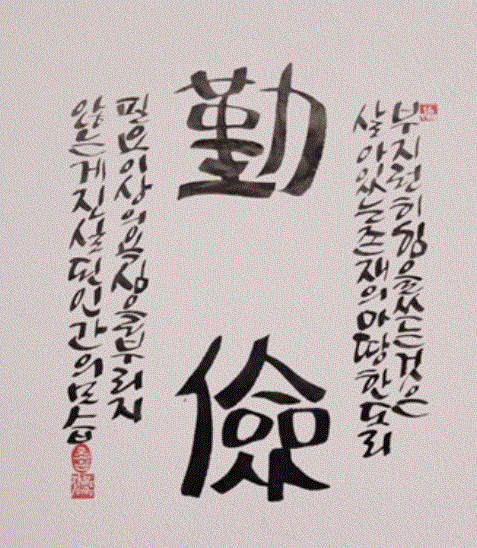 부지런히 힘을 쓰는 것은
살아있는 존재의 마땅한 도리
勤
儉
필요 이상의 욕심을 부리지
않는 게 진실된 인간의 모습